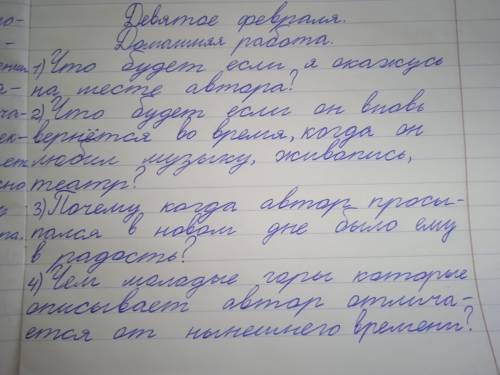 Девятое февраля.
Домашняя работа.
1) Что будет если я окажусь
на месте автора?
2) Что будет если он вновь
вернётся во время, когда он
любил музыку, живопись,
театр?
3) Почему когда автор просы-
пался в новом дне было ему
в радость?
4) Чем молодые годы которые
описывает автор отлича-
ется от нынешнего времени?